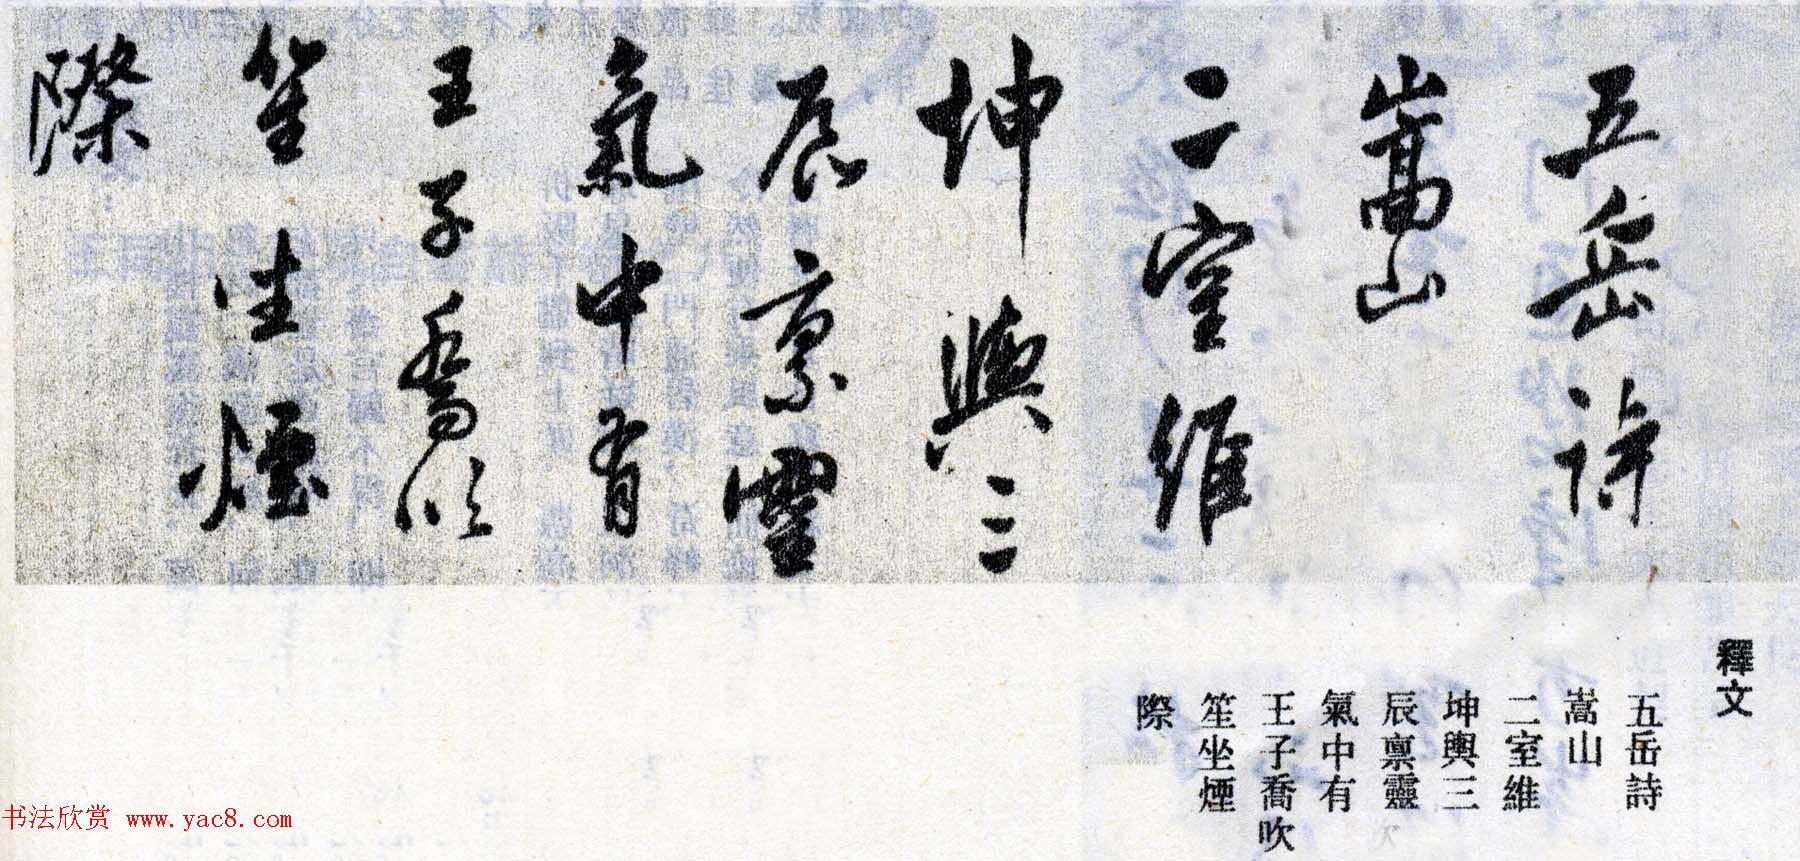 五岳詩
嵩山
二室維
坤輿三
辰禀靈
氣中有
王子喬吹
笙坐煙
際
釋文
五岳詩
嵩山
二室維
坤輿三
辰禀靈
氣中有
王子喬吹
笙坐煙
際
书法欣赏 www.yac8.com